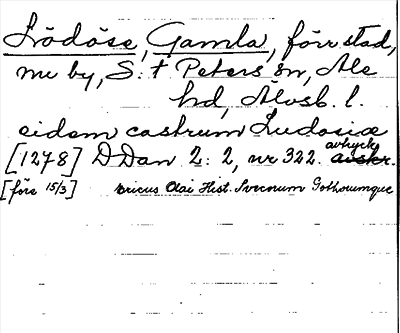 Lödöse, Gamla, förr stad,
nu by, S:t Peters sn, Ale
hd, Älvsb. l.
eidem castrum Ludosiæ
[1278] DDan 2: 2, nr 322. avtryck avskr.
[före 15/3] Ericus Olai Hist. Svecorum Gothorumque